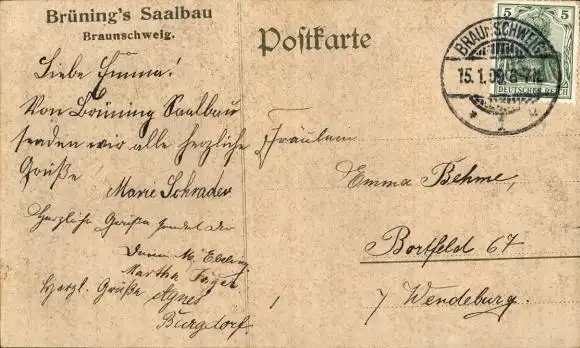 Brüning's Saalbau
Braunschweig.
Postkarte
Liebe Emma!
Von Brüning Saalbau
senden wir alle herzliche
Grüße
Marie Schrader
Herzliche Grüße sendet Dir
M. Ebeling
Martha
Herzl. Grüße Agnes
Burgdorf.
5 5
DEUTSCHES REICH
BRAUNSCHWEIG
15.1.09. 6-7N.
* 1
Fräulein
Emma Behme,
Bortfeld 67
/ Wendeburg.